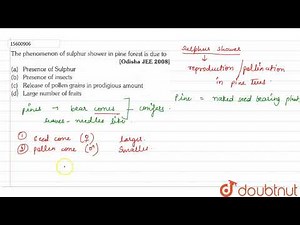 15600906
The phenomenon of sulphur shower in pine forest is due to
[Odisha JEE 2008]
(a) Presence of Sulphur
(b) Presence of insects
(c) Release of pollen grains in prodigious amount
(d) Large number of fruits
Sulphur Shower
reproduction / pollination
in pine tree.
pines → bear cones → conifers
leaves - needles like
Pine = naked seed bearing plant
① seed cone (♀) larger.
② pollen cone (♂) smaller.
doubtnut